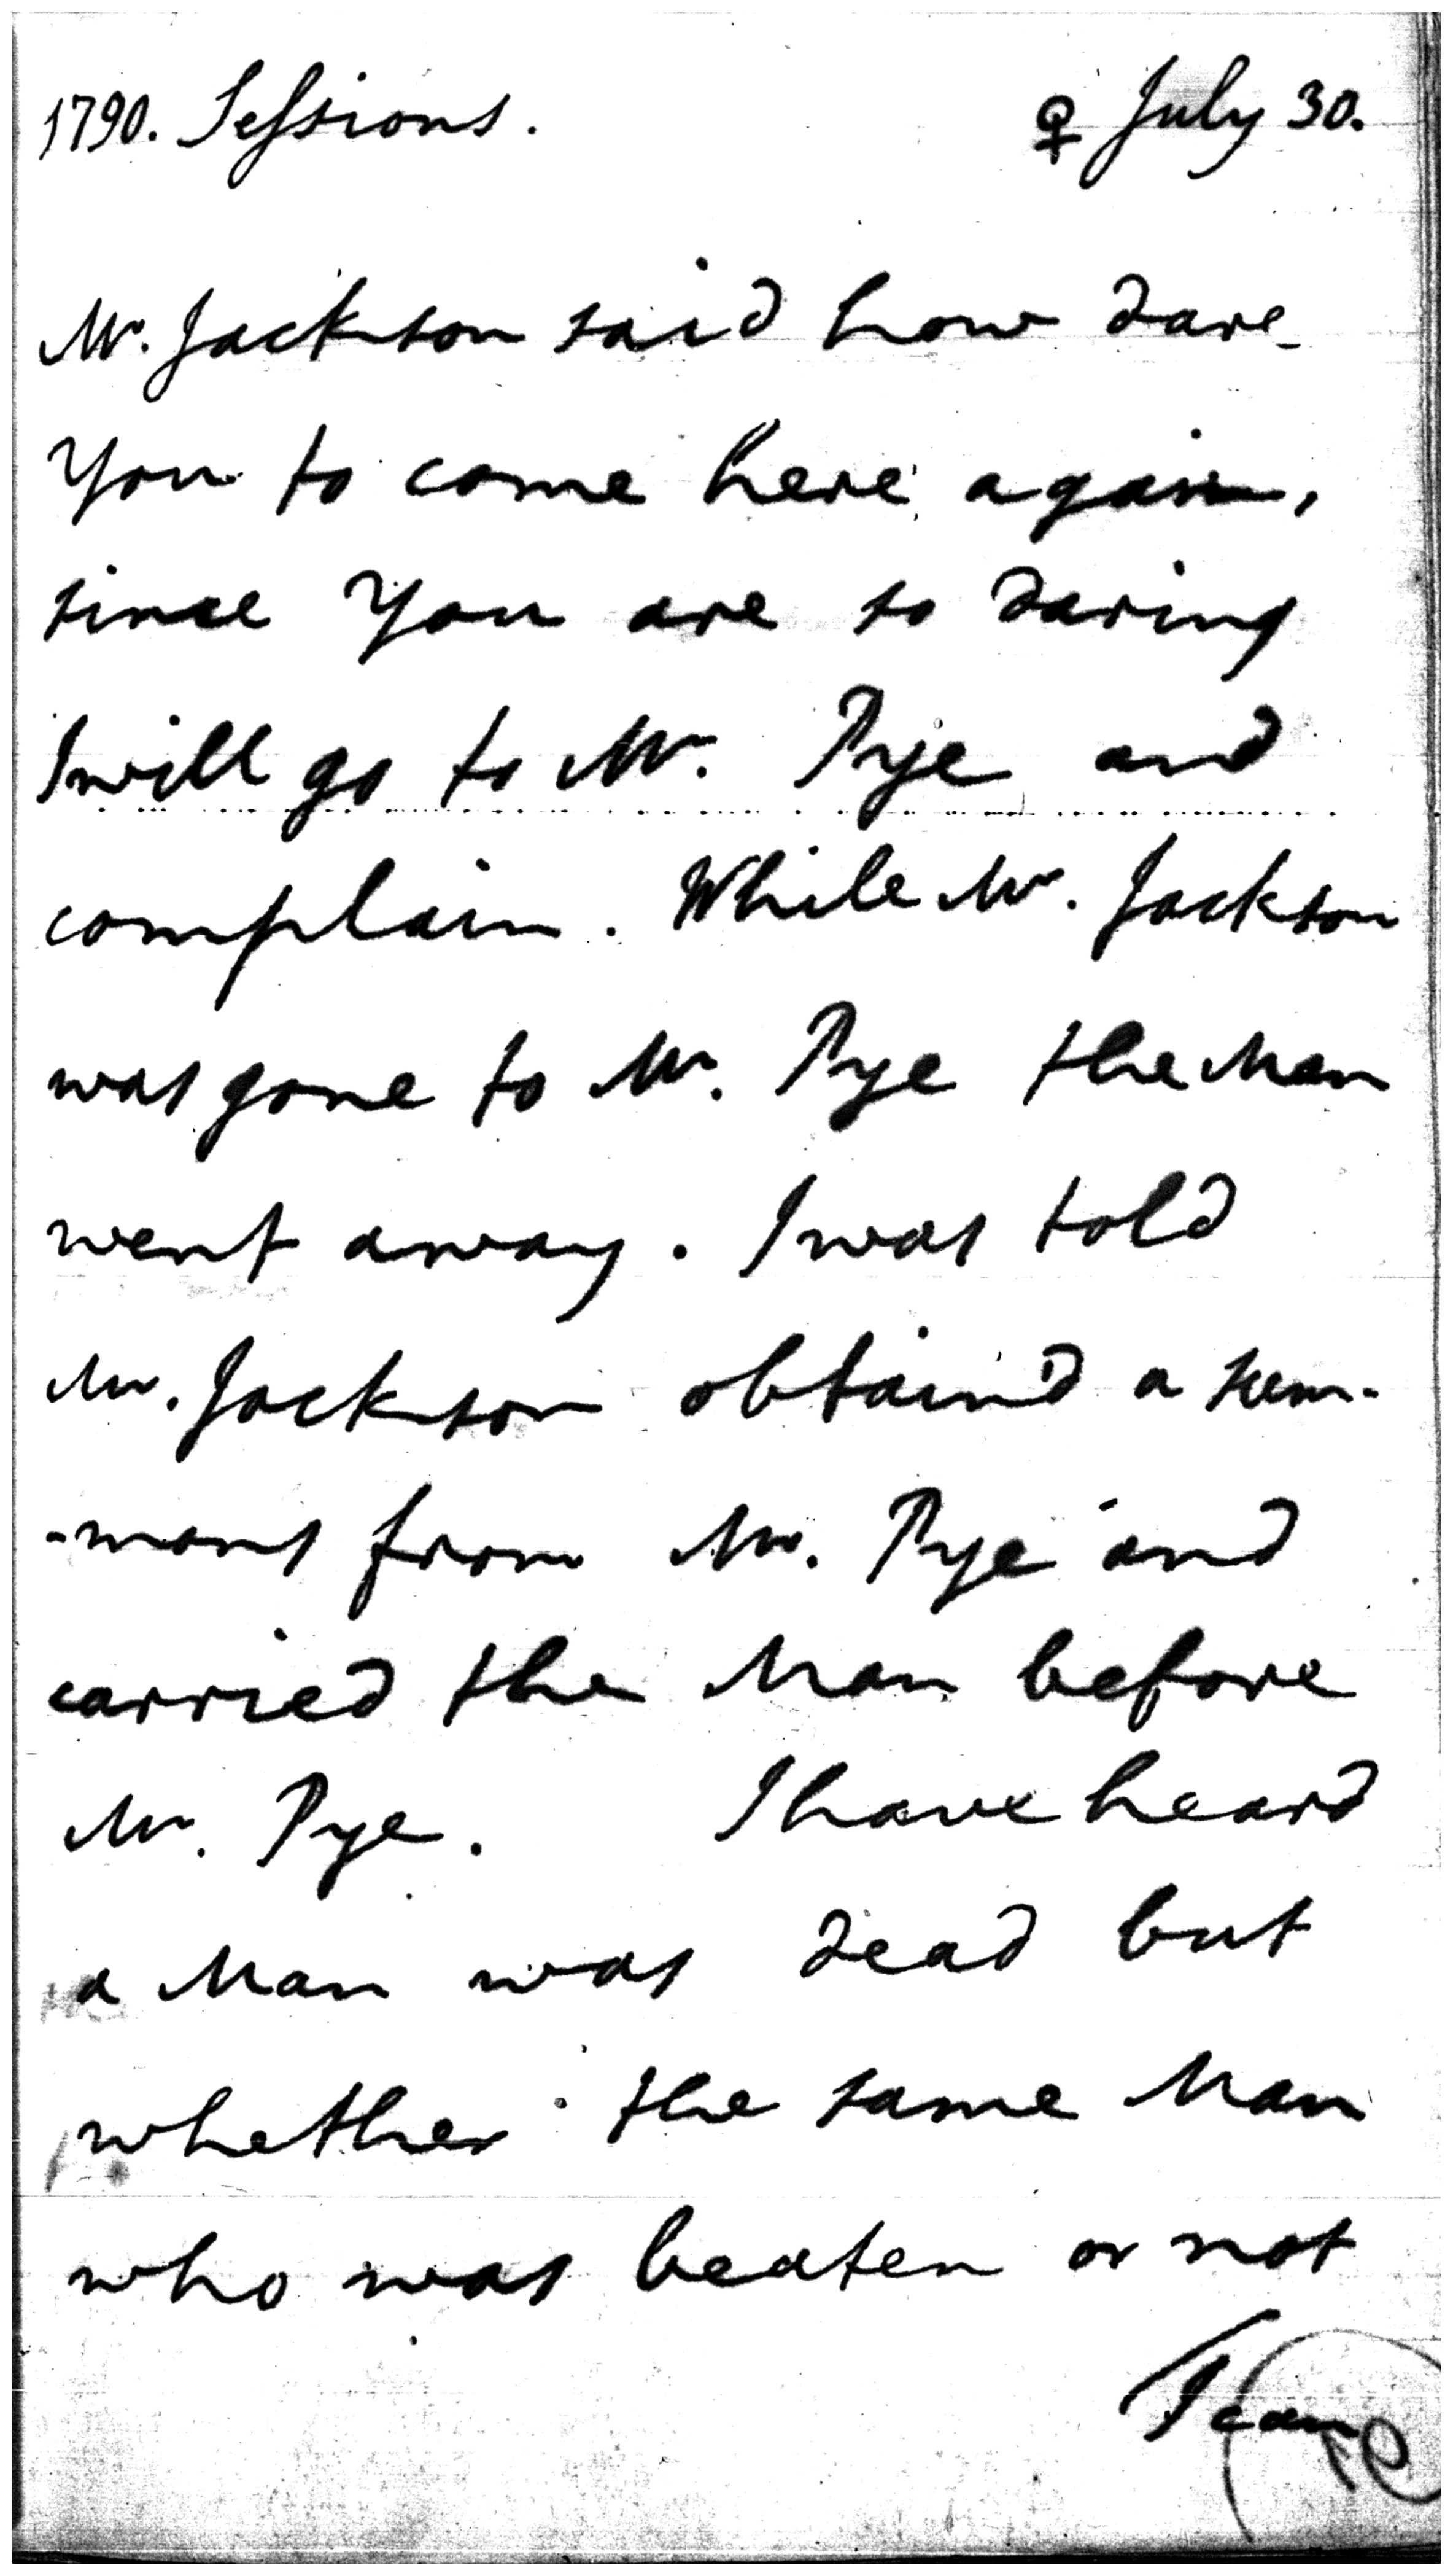 1790. Sessions. ♀ July 30.
Mr. Jackson said how dare
You to come here again,
since You are so daring
I will go to Mr. Pye and
complain. While Mr. Jackson
was gone to Mr. Pye the Man
went away. I was told
Mr. Jackson obtain'd a sum-
-mons from Mr. Pye and
carried the Man before
Mr. Pye. I have heard
a Man was dead but
whether the same Man
who was beaten or not
I can